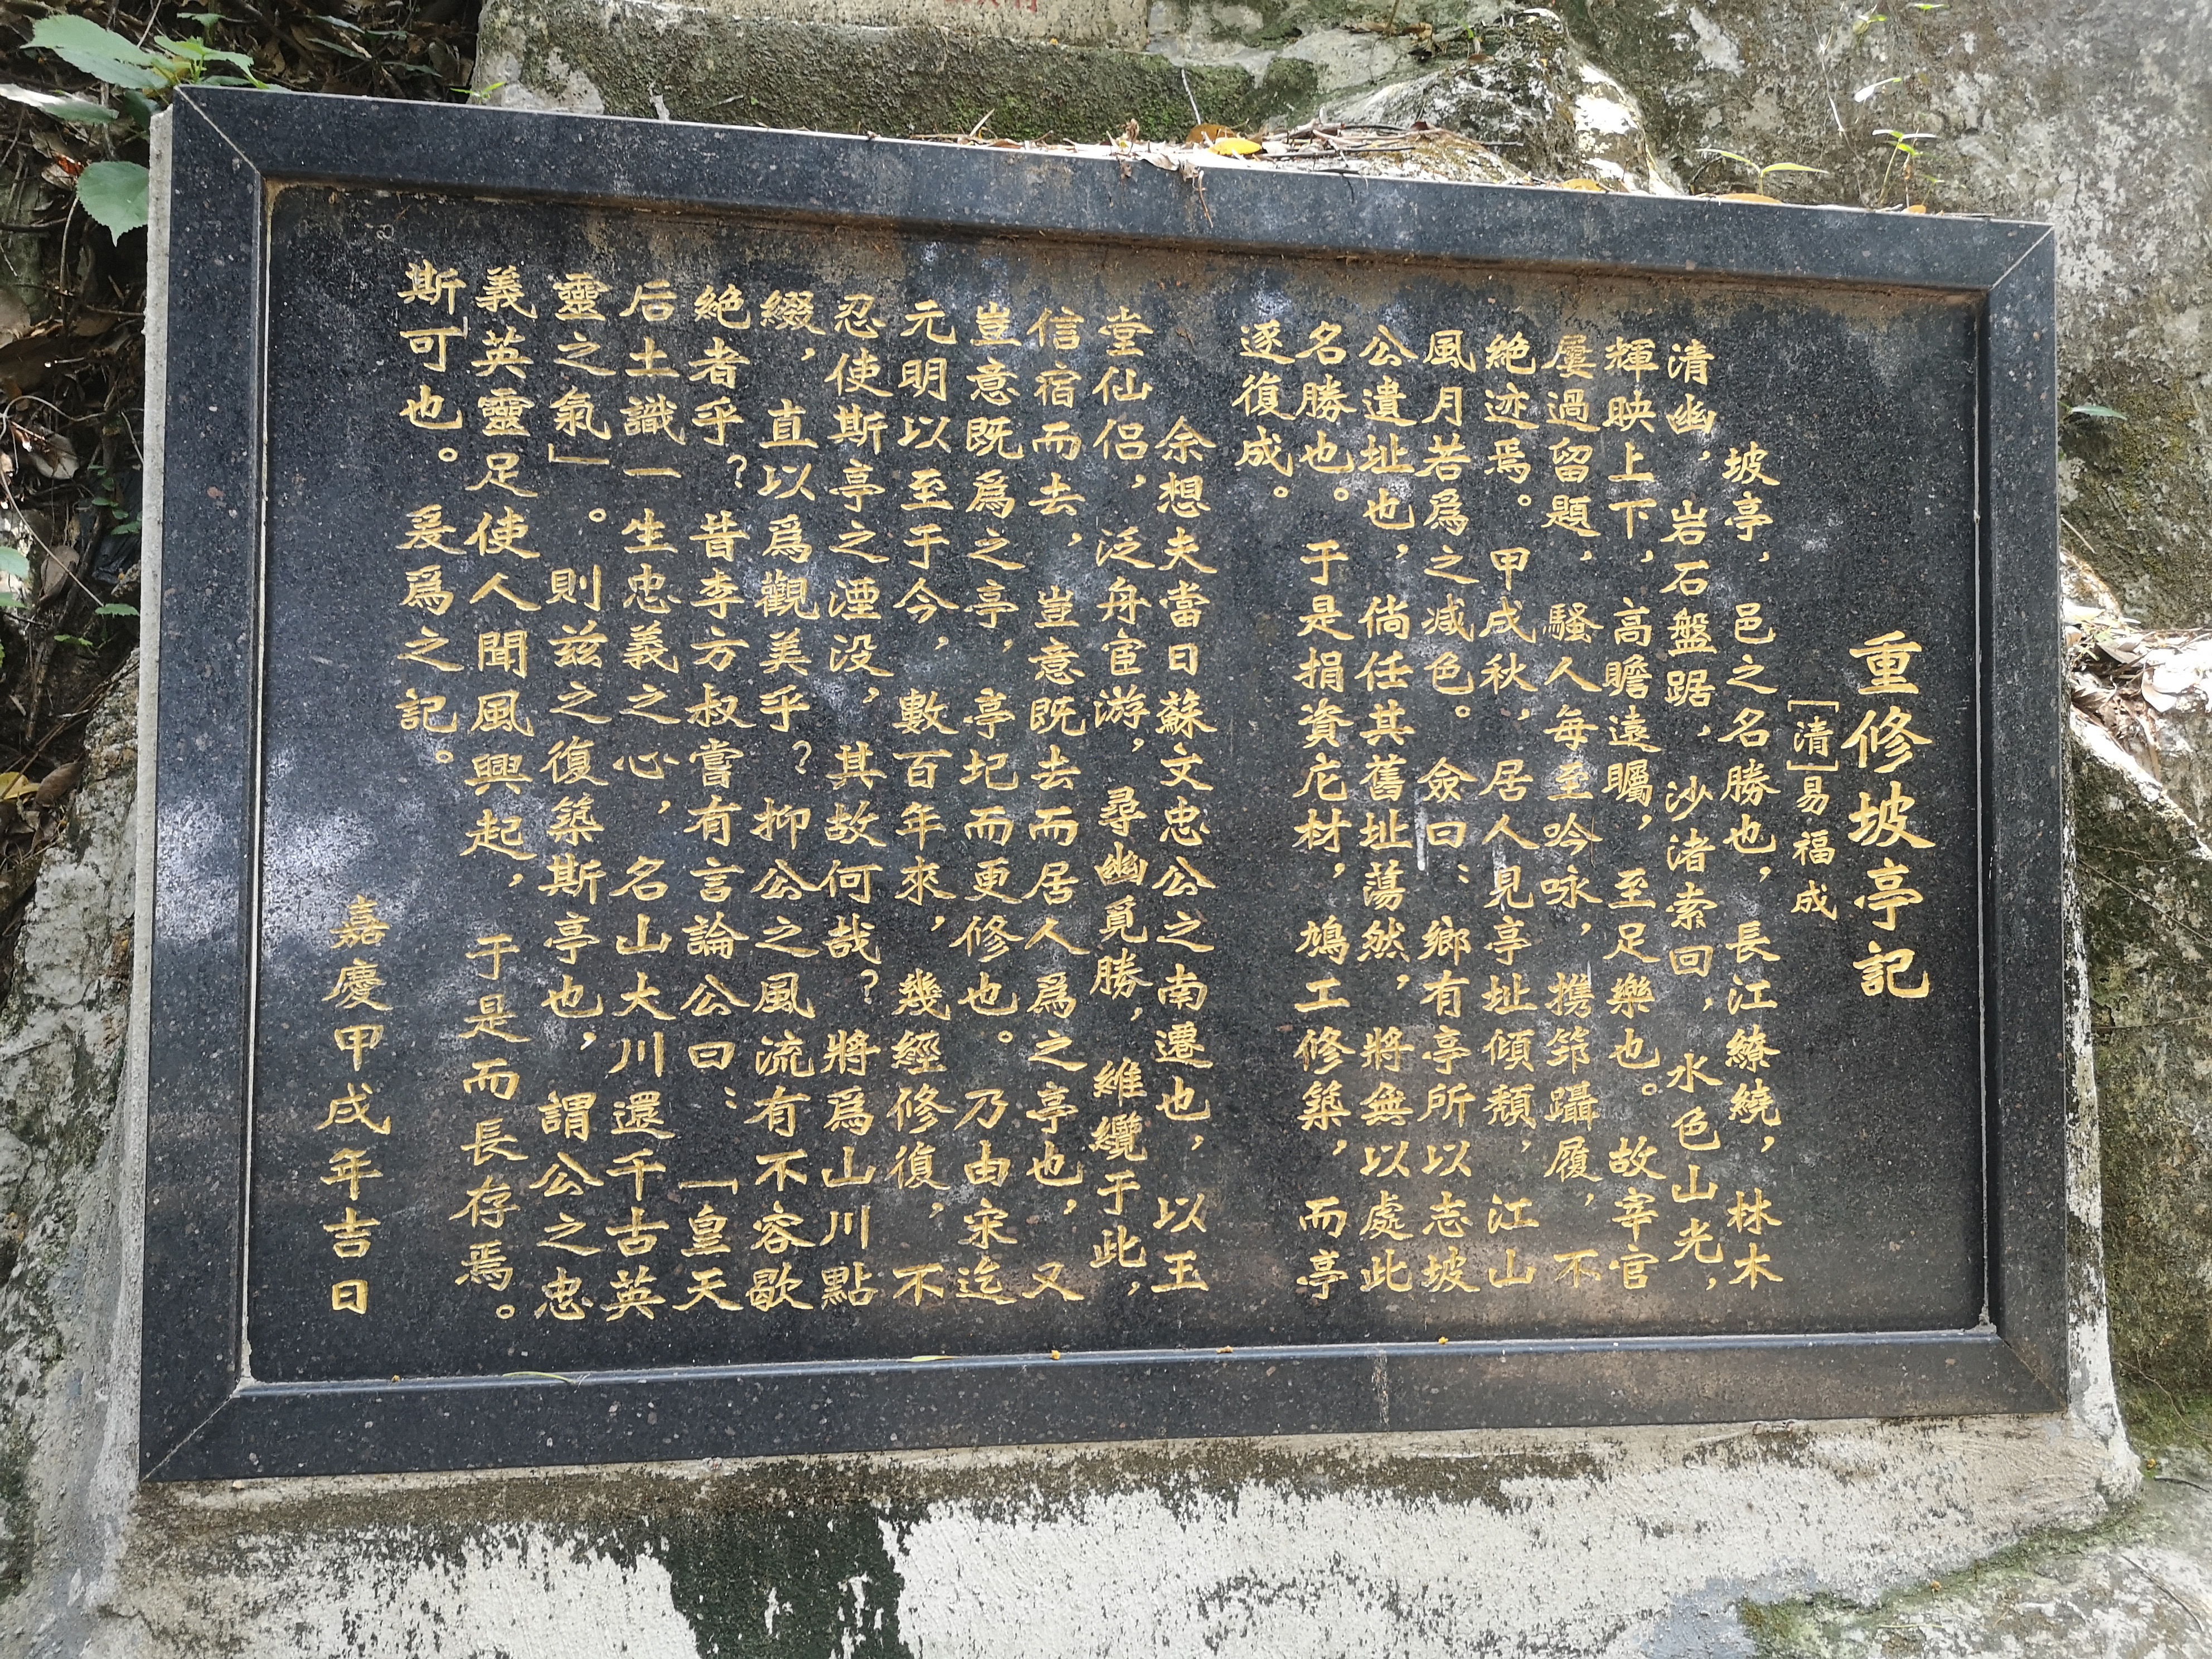 重修坡亭記
［清］易福成
坡亭，邑之名勝也，長江繚繞，林木
清幽，岩石盤踞，沙渚索回，水色山光，
輝映上下，高瞻遠矚，至足樂也。故宰官
屢過留題，騷人每至吟咏，携筇躡履，不
絶迹焉。甲戌秋，居人見亭址傾頽，江山
風月若爲之减色。僉曰：鄉有亭所以志坡
公遺址也，倘任其舊址蕩然，將無以處此
名勝也。于是捐資庀材，鳩工修築，而亭
逐復成。
余想夫當日蘇文忠公之南遷也，以玉
堂仙侣，泛舟宦游，尋幽覓勝，維纜于此，
信宿而去，豈意既去而居人爲之亭也，又
豈意既爲之亭，亭圮而更修也。乃由宋迄
元明以至于今，數百年來，幾經修復，不
忍使斯亭之湮没，其故何哉？將爲山川點
綴，直以爲觀美乎？抑公之風流有不容歇
絶者乎？昔李方叔嘗有言論公曰：「皇天
后土識一生忠義之心，名山大川還千古英
靈之氣」。則兹之復築斯亭也，謂公之忠
義英靈足使人聞風興起，于是而長存焉。
斯可也。爰爲之記。
嘉慶甲戌年吉日